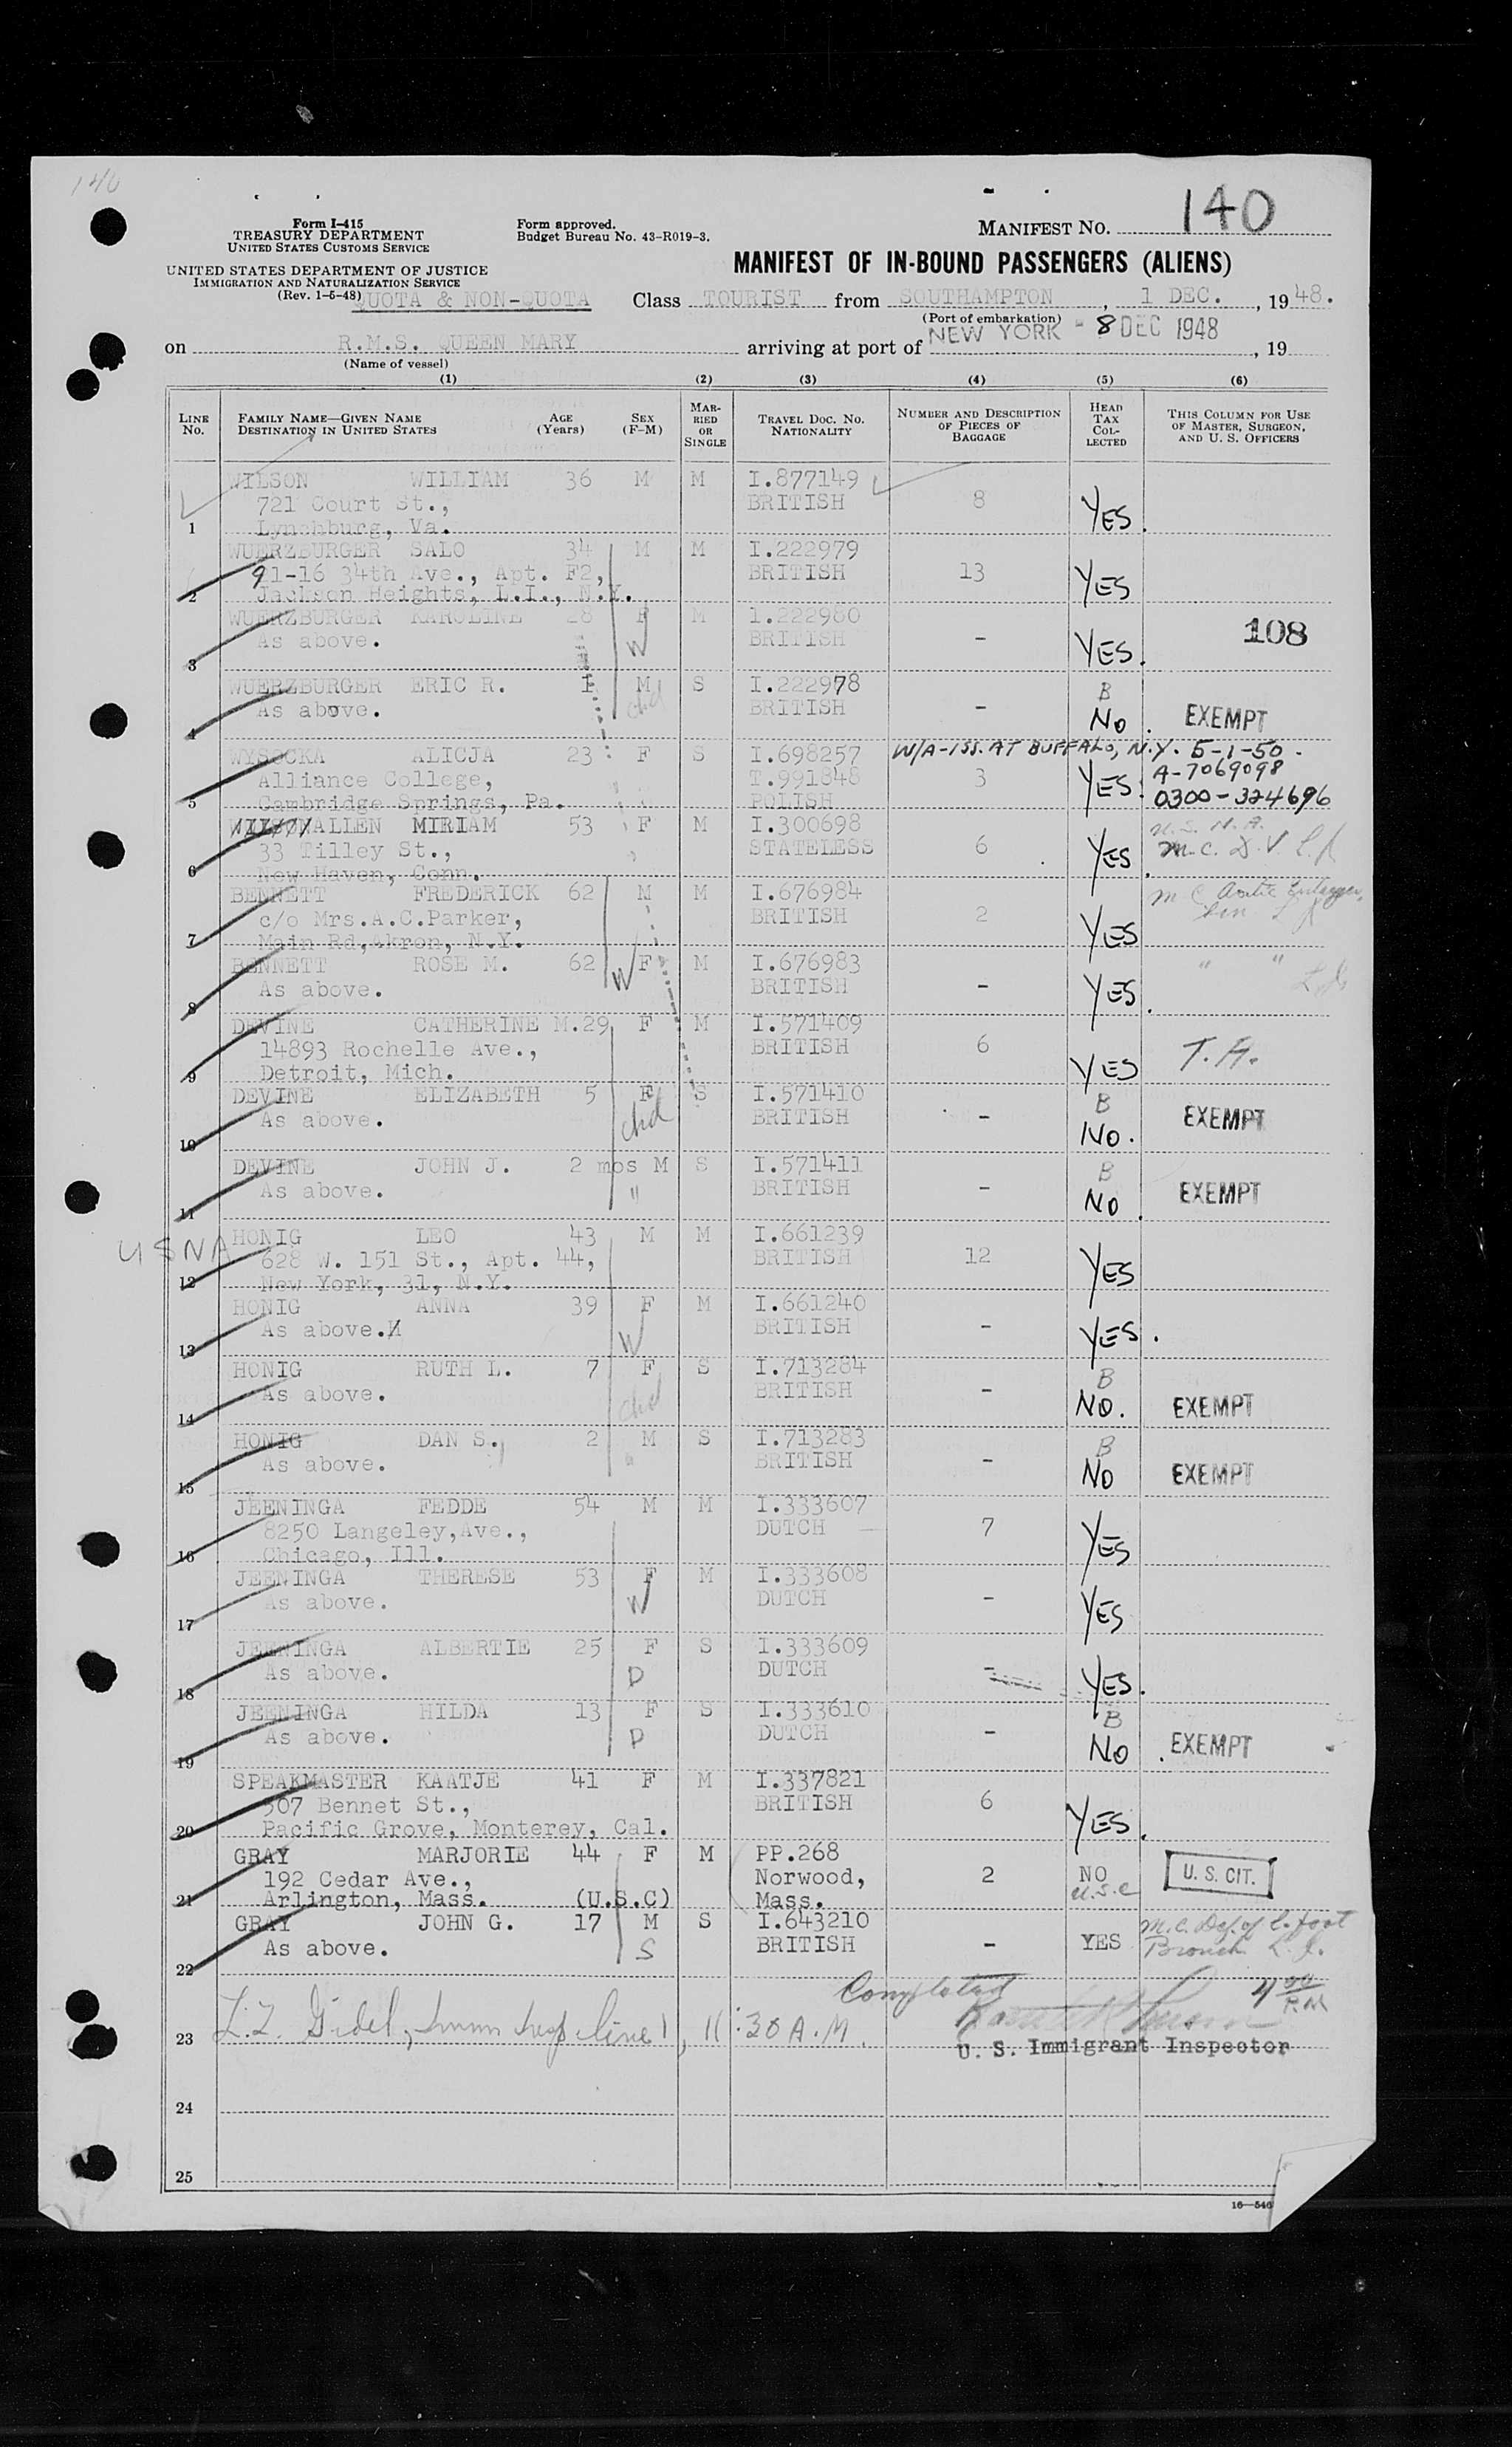 140
Form I-415
TREASURY DEPARTMENT
UNITED STATES CUSTOMS SERVICE
Form approved.
Budget Bureau No. 43-R019-3.
MANIFEST NO. 140
UNITED STATES DEPARTMENT OF JUSTICE
IMMIGRATION AND NATURALIZATION SERVICE
(Rev. 1-5-48)
MANIFEST OF IN-BOUND PASSENGERS (ALIENS)
QUOTA & NON-QUOTA Class TOURIST from SOUTHAMPTON, 1 DEC., 1948.
(Port of embarkation)
on R.M.S. QUEEN MARY arriving at port of NEW YORK - 8 DEC 1948, 19
(Name of vessel)
(1) (2) (3) (4) (5) (6)
LINE No. FAMILY NAME—GIVEN NAME DESTINATION IN UNITED STATES AGE (Years) SEX (F-M) MARRIED OR SINGLE TRAVEL DOC. No. NATIONALITY NUMBER AND DESCRIPTION OF PIECES OF BAGGAGE HEAD TAX COLLECTED THIS COLUMN FOR USE OF MASTER, SURGEON, AND U. S. OFFICERS
WILSON WILLIAM 36 M M I.877149
721 Court St., BRITISH 8 YES.
1 Lynchburg, Va.
WUERZBURGER SALO 34 M M I.222979
91-16 34th Ave., Apt. F2, BRITISH 13 YES
2 Jackson Heights, L.I., N.Y.
WUERZBURGER KAROLINE 28 F M I.222980 108
As above. W BRITISH - YES.
3
WUERZBURGER ERIC R. 1 M S I.222978 B
As above. chd BRITISH - NO. EXEMPT
4
WYSOCKA ALICJA 23 F S I.698257 W/A-ISS. AT BUFFALO, N.Y. 5-1-50.
Alliance College, T.991848 3 YES. A-7069098
5 Cambridge Springs, Pa. POLISH 0300-324696
ALLEN MIRIAM 53 F M I.300698 U.S.N.A.
33 Tilley St., STATELESS 6 YES. M.C. D.V.
6 New Haven, Conn.
BENNETT FREDERICK 62 M M I.676984 M C
c/o Mrs.A.C.Parker, BRITISH 2 YES
7 Main Rd,Akron, N.Y.
BENNETT ROSE M. 62 F M I.676983 " "
As above. W BRITISH - YES.
8
DEVINE CATHERINE M. 29 F M I.571409
14893 Rochelle Ave., BRITISH 6 YES T.H.
9 Detroit, Mich.
DEVINE ELIZABETH 5 F S I.571410 B
As above. chd BRITISH - NO. EXEMPT
10
DEVINE JOHN J. 2 mos M S I.571411 B
As above. " BRITISH - NO. EXEMPT
11
USNA HONIG LEO 43 M M I.661239
628 W. 151 St., Apt. 44, BRITISH 12 YES
12 New York, 31, N.Y.
HONIG ANNA 39 F M I.661240
As above. W BRITISH - YES.
13
HONIG RUTH L. 7 F S I.713284 B
As above. chd BRITISH - NO. EXEMPT
14
HONIG DAN S. 2 M S I.713283 B
As above. " BRITISH - NO EXEMPT
15
JEENINGA FEDDE 54 M M I.333607
8250 Langeley,Ave., DUTCH 7 YES
16 Chicago, Ill.
JEENINGA THERESE 53 F M I.333608
As above. W DUTCH - YES
17
JEENINGA ALBERTIE 25 F S I.333609
As above. D DUTCH - YES.
18
JEENINGA HILDA 13 F S I.333610 B
As above. D DUTCH - NO. EXEMPT
19
SPEAKMASTER KAATJE 41 F M I.337821
307 Bennet St., BRITISH 6 YES.
20 Pacific Grove, Monterey, Cal.
GRAY MARJORIE 44 F M PP.268
192 Cedar Ave., Norwood, 2 NO U. S. CIT.
21 Arlington, Mass. (U.S.C) Mass. U.S.C
GRAY JOHN G. 17 M S I.643210 M.C. Def. of L. foot
As above. S BRITISH - YES
22
Completed 4 00 P.M
23 line 1, 11:30 A.M.
U. S. Immigrant Inspector
24
25
16—546